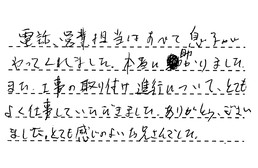 電話、営業担当はすべて息子が
やってくれました。本当に助かりました
また、工事の取り付け、進行について、とても
よく仕事していただきました。ありがとうござい
ました。とても感じのよいお兄さんでした。